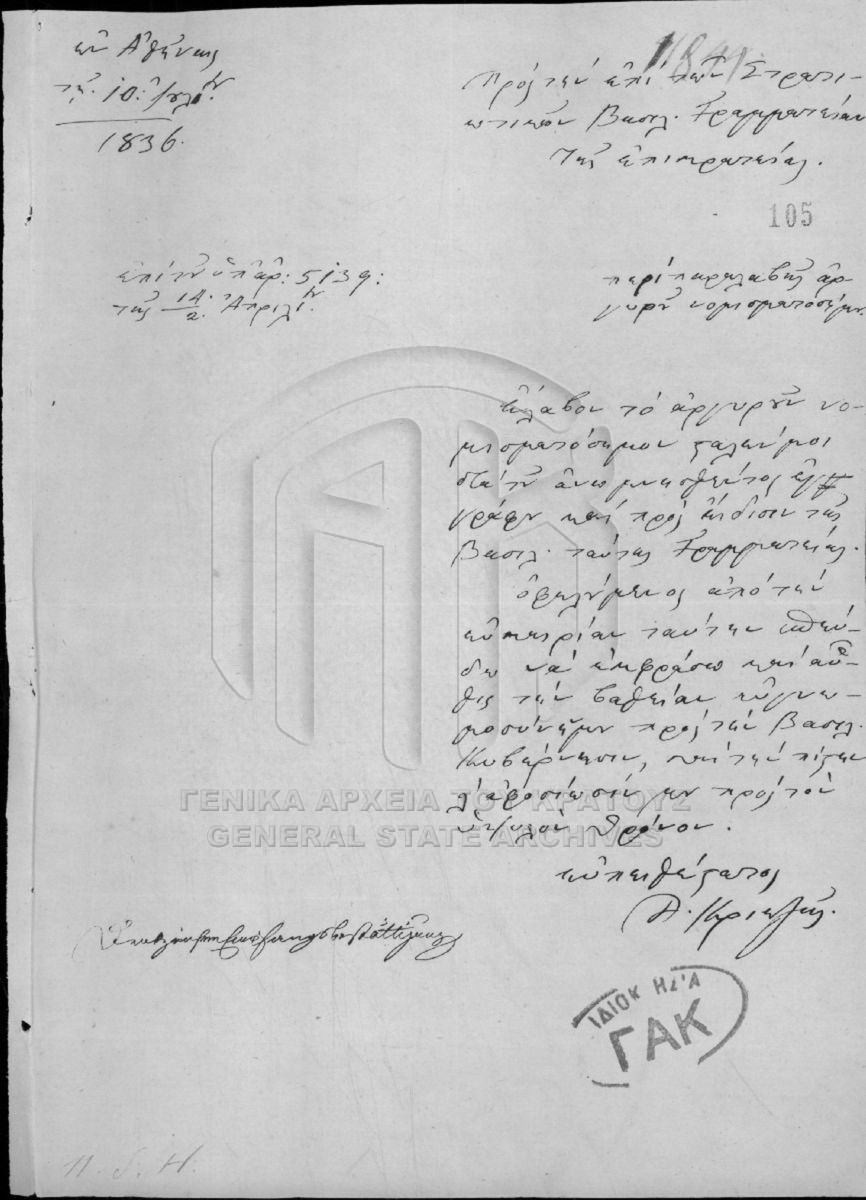 ἐν Ἀθήναις
τῇ 10: Ἰουλίου
1836.
Πρὸς τὴν ἐπὶ τῶν Στρατι-
ωτικῶν Βασιλ. Γραμματείαν
τῆς ἐπικρατείας.
105
ἐπὶ τοῦ ὑπ' ἀρ: 5139:
τῆς 14/2 Ἀπριλίου.
περὶ παραλαβῆς ἀρ-
γυροῦ νομισματοσήμου.
Ἔλαβον τὸ ἀργυροῦν νο-
μισματόσημον σταλέν μοι
διὰ τοῦ ἄνω μνησθέντος ἐγ-
γράφου καὶ πρὸς εἴδησιν τῆς
Βασιλ. ταύτης Γραμματείας.
ὠφελούμενος ἀπὸ τὴν
εὐκαιρίαν ταύτην σπεύ-
δω νὰ ἐκφράσω καὶ αὖ-
θις τὴν βαθεῖαν εὐγνω-
μοσύνην μου πρὸς τὴν Βασιλ.
Κυβέρνησιν, καὶ τὴν πίστιν
καὶ ἀφοσίωσίν μου πρὸς τὸν
ὑψηλὸν θρόνον.
εὐπειθέστατος
Α. Κριεζῆς.
ΓΕΝΙΚΑ ΑΡΧΕΙΑ ΤΟΥ ΚΡΑΤΟΥΣ
GENERAL STATE ARCHIVES
ΓΑΚ